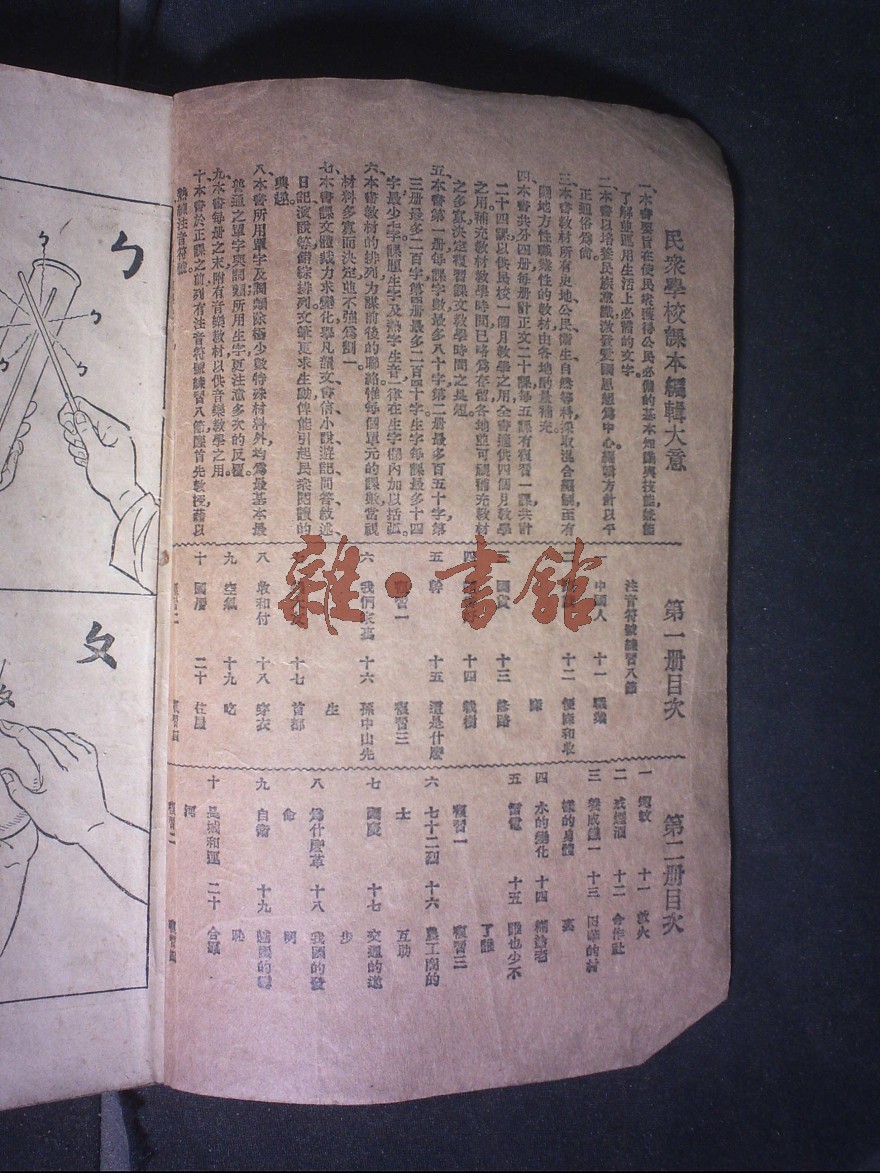 民衆學校課本編輯大意
一、本書要旨在使民衆獲得公民必備的基本知識與技能，並能
了解並運用生活上必需的文字。
二、本書以培養民族意識，激發愛國思想爲中心，編輯方針以平
正通俗爲尚。
三、本書教材所有史地、公民、衞生、自然等科，採取混合編制，至有
關地方性職業性的教材，由各地酌量補充。
四、本書共分四册，每册計正文二十課，每五課有複習一課，共計
二十四課，以供民校一個月教學之用，全書適供四個月教學
之用，補充教材教學時間已略爲存留，各地並可視補充教材
之多寡，決定複習課文教學時間之長短。
五、本書第一册每課字數最多八十字，第二册最多百五十字，第
三册最多二百字，第四册最多二百四十字，生字每課最多十四
字，最少七字，課題生字及熟字生音，一律在生字欄內加以括弧。
六、本書教材的排列，力謀前後的聯絡，惟每個單元的課數，當視
材料多寡而決定，並不強爲劃一。
七、本書課文體裁，力求變化，舉凡韻文、書信、小說、遊記、問答、敘述、
日記、演說等，錯綜排列，文筆更求生動，俾能引起民衆閱讀的
興趣。
八、本書所用單字及詞類，除極少數特殊材料外，均爲最基本最
普通之單字與詞類，所用生字，更注意多次的反覆。
九、本書每册之末，附有音樂教材，以供音樂教學之用。
十、本書於正課之前，列有注音符號練習八節，應首先教授，藉以
熟練注音符號。
第一册目次
注音符號練習八節
一 中國人 十一 職業
二 十二 便厰和收
條
三 國貨 十三 修路
四 十四 栽樹
五 幹 十五 這是什麼
複習一 複習三
六 我們家裏 十六 孫中山先
生
十七 首都
八 收和付 十八 穿衣
九 空氣 十九 吃
十 國曆 二十 住屋
複習二 複習四
第二册目次
一 十一 救火
二 戒煙酒 十二 合作社
三 養成鐵一 十三 田畔的村
樣的身體 裏
四 水的變化 十四
五 雷電 十五 誰也少不
了誰
複習一 複習三
六 七十二烈 十六 農工商的
士 互助
七 國慶 十七 交通的進
步
八 爲什麼革 十八 我國的發
命 明
九 自衞 十九 越國的雪
恥
十 長城和運 二十 合羣
河
複習二 複習四
ㄅ
ㄅ
ㄅ
ㄅ
ㄆ
ㄆ
雜·書館